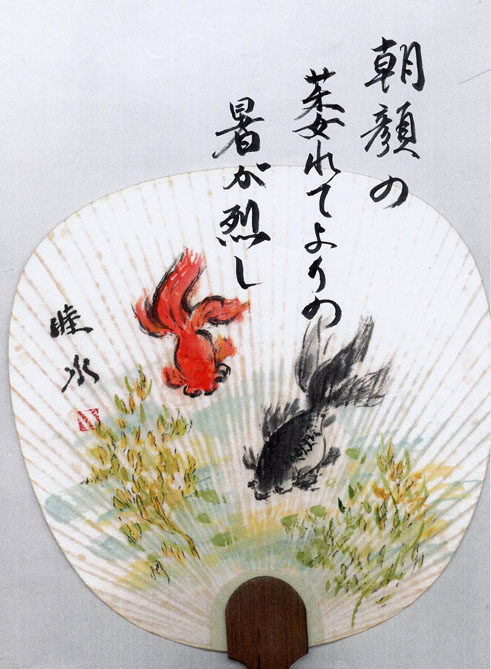 朝顔の
萎れてよりの
暑が烈し
睦水